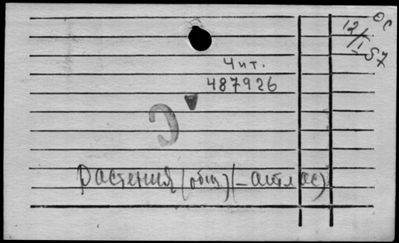 ОС
12/I-57
Чит.
487926
Э
Растения (общ) (-атлас)